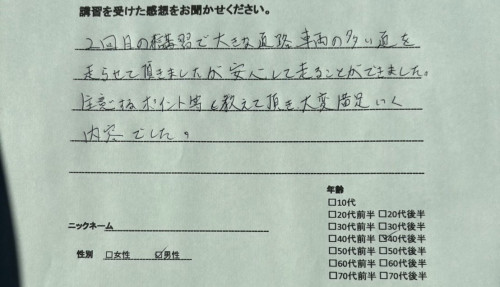 講習を受けた感想をお聞かせください。
2回目の講習で大きな道路車両の多い道を
走らせて頂きましたが安心して走ることができました。
注意するポイント等も教えて頂き大変満足いく
内容でした。
年齢
□10代
□20代前半 □20代後半
□30代前半 □30代後半
□40代前半 ☑40代後半
□50代前半 □50代後半
□60代前半 □60代後半
□70代前半 □70代後半
ニックネーム
性別 □女性 ☑男性